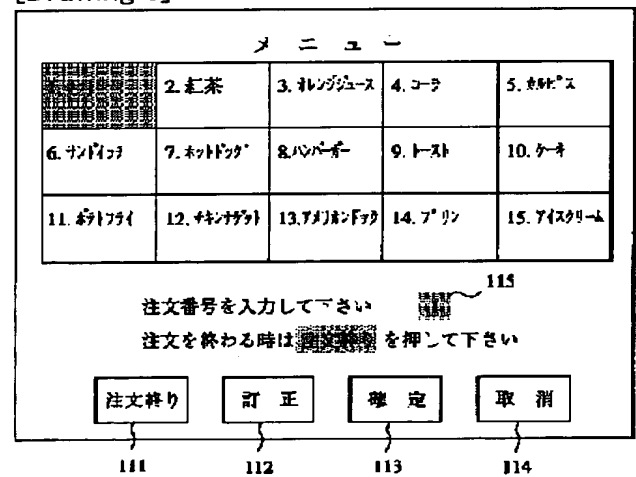 メニュー
2. 紅茶 3. オレンジジュース 4. コーラ 5. カルピス
6. サンドイッチ 7. ホットドッグ 8. ハンバーガー 9. トースト 10. ケーキ
11. ポテトフライ 12. チキンナゲット 13. アメリカンドック 14. プリン 15. アイスクリーム
115
注文番号を入力して下さい
注文を終わる時は 注文終り を押して下さい
注文終り 訂正 確定 取消
111 112 113 114